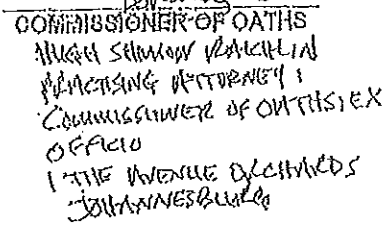 COMMISSIONER OF OATHS
HUGH SHIMON
PRACTISING ATTORNEY
COMMISSIONER OF OATHS, EX
OFFICIO
1 THE AVENUE ORCHARDS
JOHANNESBURG